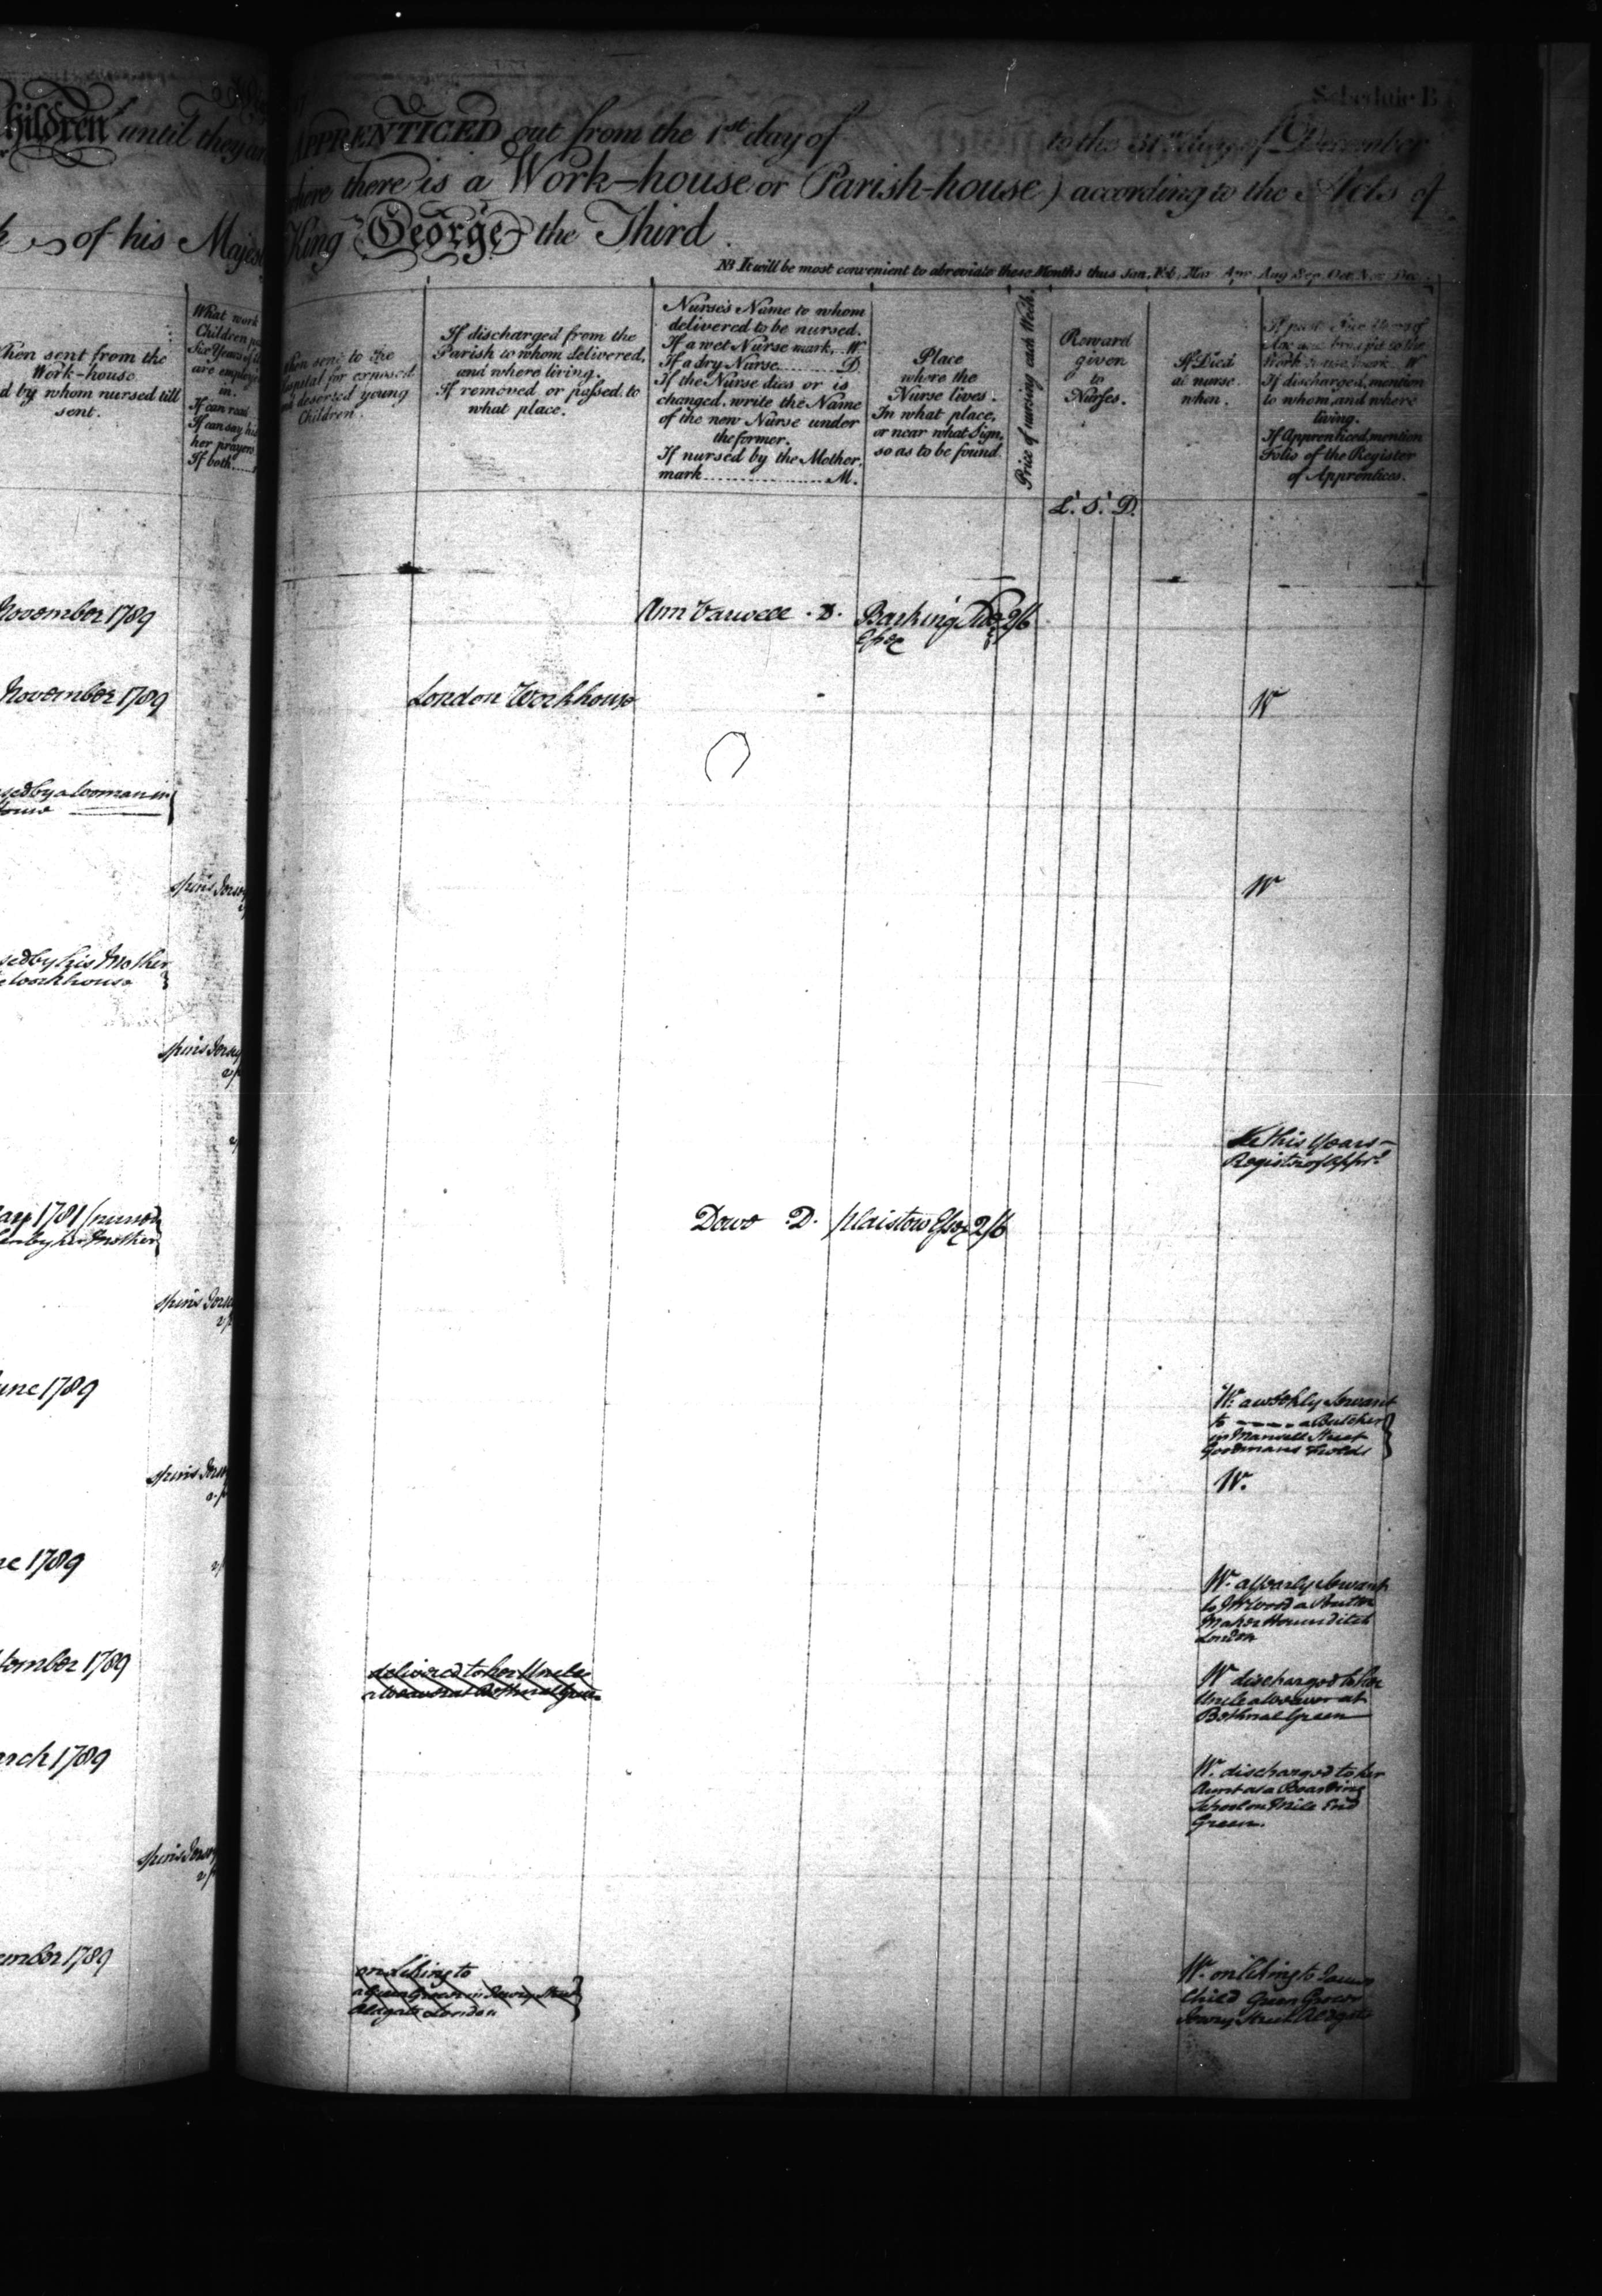 Schedule B
hildren until they are
APPRENTICED out from the 1st day of to the 31st day of December
there is a Work-house or Parish-house) according to the Acts of
of his Majesty
King George the Third.
NB It will be most convenient to abreviate these Months thus Jan, Feb, Mar, Apr, Aug Sep, Oct, Nov, Dec
When sent from the
Work-house
d by whom nursed till
sent.
What work
Children
Six Years of
are employ
in.
If can read
If can say his
her prayers
If both
When sent to the
Hospital for exposed
and deserted young
Children.
If discharged from the
Parish to whom delivered,
and where living.
If removed or passed to
what place.
Nurse's Name to whom
delivered to be nursed.
If a wet Nurse mark. W
If a dry Nurse D
If the Nurse dies or is
changed, write the Name
of the new Nurse under
the former.
If nursed by the Mother,
mark M.
Place
where the
Nurse lives.
In what place,
or near what Sign,
so as to be found.
Price of nursing each Week.
Reward
given
to
Nurses.
L. S. D.
If Died
at nurse
when.
If past Five Years of
Age and brought to the
Work-house mark W
If discharged, mention
to whom, and where
living.
If Apprenticed, mention
Folio of the Register
of Apprentices.
November 1789
Ann D. Barking 2/6
Essex
November 1789
London Workhouse
W
sed by a woman in
house
spins Jersey
W
sed by his Mother
workhouse
spins Jersey
See this Years
Register of Appr.
1781 (nursed
by her Mother
Dowe D. Plaistow Essex 2/6
spins Jersey
June 1789
W. a weekly Servant
to a Butcher
in Mansell Street
Goodmans Fields
spins Jersey
W.
ne 1789
W. a Yearly Servant
to Mr Wood a
Maker Houndsditch
London
tember 1789
delivered to her Uncle
a Weaver at Bethnal Green
W discharged to her
Uncle a Weaver at
Bethnal Green
arch 1789
W. discharged to her
Aunt at a Boarding
School on Mile End
Green.
spins Jersey
ember 1789
on Liking to
a Green Grocer in Jewry Street
Aldgate London
W. on liking to James
Child Green Grocer
Jewry Street Aldgate